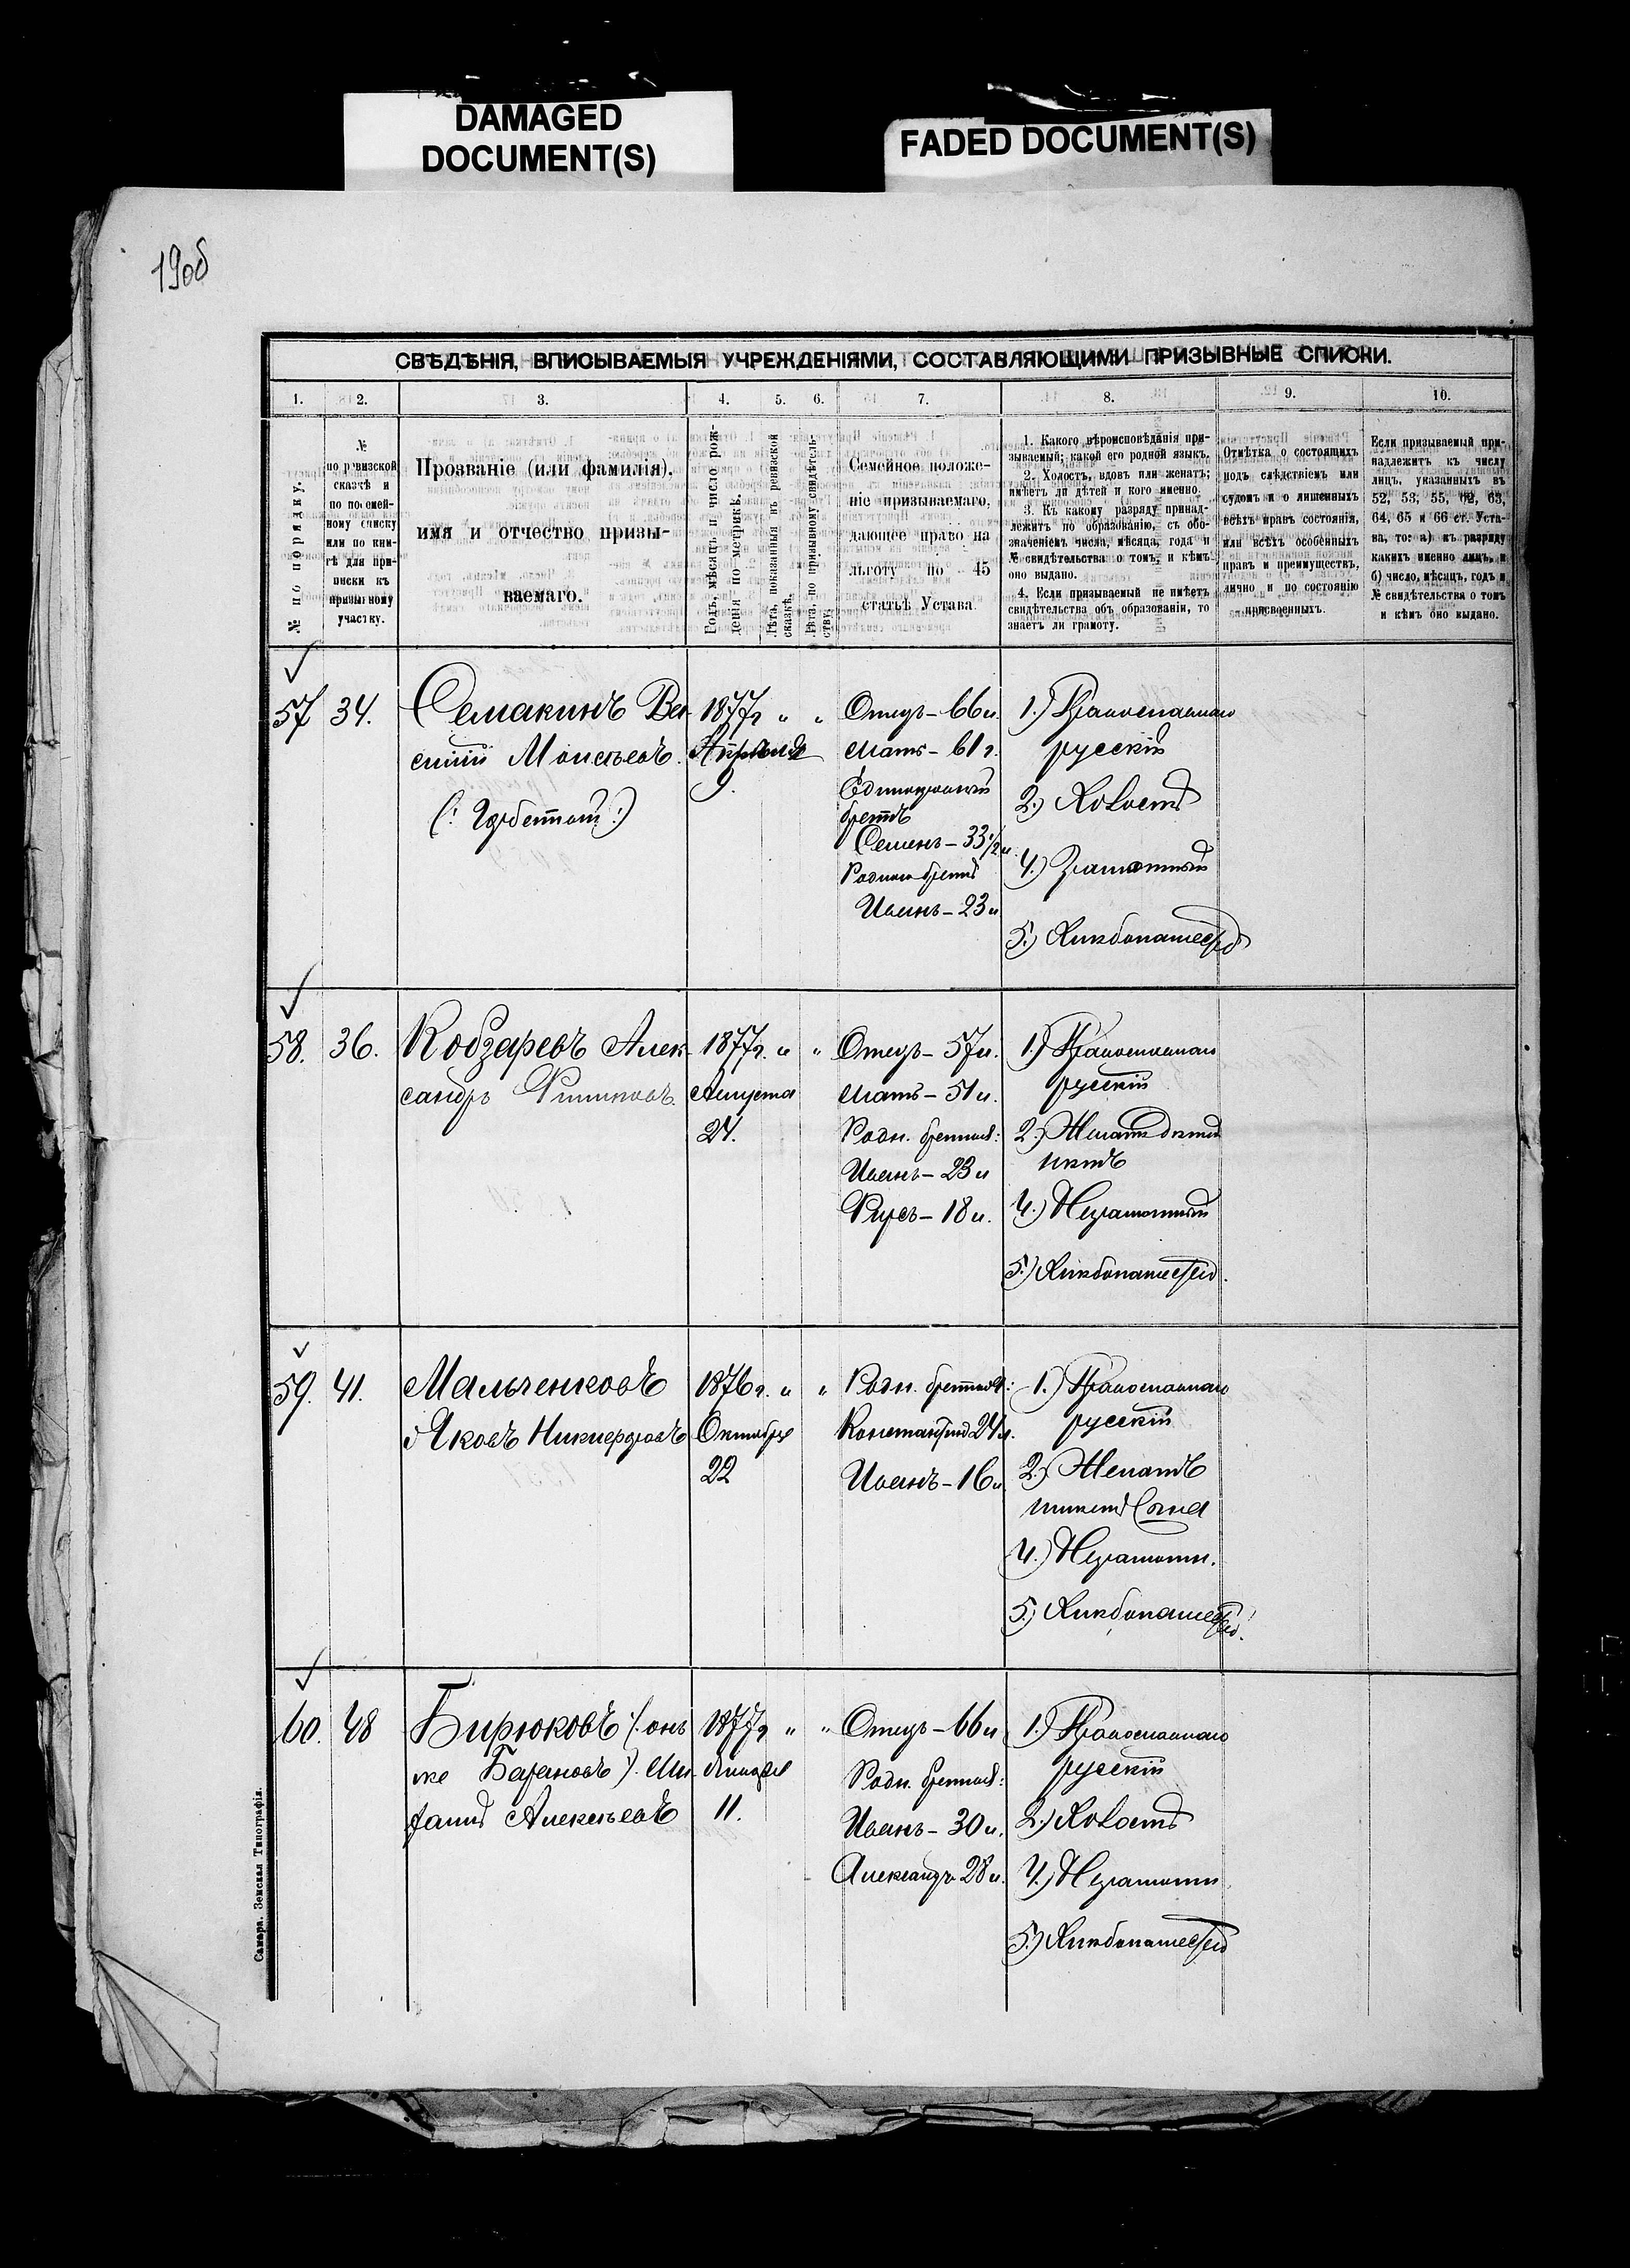 DAMAGED
DOCUMENT(S)
FADED DOCUMENT(S)
190об
СВѢДѢНІЯ, ВПИСЫВАЕМЫЯ УЧРЕЖДЕНІЯМИ, СОСТАВЛЯЮЩИМИ ПРИЗЫВНЫЕ СПИСКИ.
1. 2. 3. 4. 5. 6. 7. 8. 9. 10.
№ по порядку.
№
по ревизской
сказкѣ и
по посемей-
ному списку
или по кни-
гѣ для при-
писки къ
призывному
участку.
Прозваніе (или фамилія).
имя и отчество призы-
ваемаго.
Годъ, мѣсяцъ и число рож-
денія по метрикѣ.
Лѣта, показанныя въ ревизской
сказкѣ.
Лѣта, по призывному свидѣтель-
ству.
Семейное положе-
ніе призываемаго,
дающее право на
льготу по 45
статьѣ Устава
1. Какого вѣроисповѣданія при-
зываемый; какой его родной языкъ.
2. Холостъ, вдовъ или женатъ;
имѣетъ ли дѣтей и кого именно.
3. Къ какому разряду принад-
лежитъ по образованію, съ обо-
значеніемъ числа, мѣсяца, года и
№ свидѣтельства о томъ, и кѣмъ
оно выдано.
4. Если призываемый не имѣетъ
свидѣтельства объ образованіи, то
знаетъ ли грамоту.
Отмѣтка о состоящихъ
подъ слѣдствіемъ или
судомъ и о лишенныхъ
всѣхъ правъ состоянія,
или всѣхъ особенныхъ
правъ и преимуществъ,
лично и по состоянію
присвоенныхъ.
Если призываемый при-
надлежитъ къ числу
лицъ, указанныхъ въ
52, 53, 55, 62, 63,
64, 65 и 66 ст. Уста-
ва, то: а) къ разряду
какихъ именно лицъ, и
б) число, мѣсяцъ, годъ и
№ свидѣтельства о томъ
и кѣмъ оно выдано.
57 34.
Семакинъ Ва-
силій Моисѣевъ.
1877г. " "
Апрѣля
9.
Отецъ – 66 л.
Мать – 61 г.
Единокровный
братъ
Семенъ – 33½ л.
Родной братъ
Иванъ – 23 л
1.) Православнаго
русскій
2.) Холостъ
4.) Грамотный
5.) Хлѣбопашество
58. 36.
Кобзаревъ Алек-
сандръ Филиповъ.
1877г. " "
Августа
24.
Отецъ – 57 л.
Мать – 51 л.
Родн. братья:
Иванъ – 23 л
Фирсъ – 18 л.
1.) Православнаго
русскій
2.) Женатъ дѣтей
нѣтъ
4.) Неграмотный
5.) Хлѣбопашество.
59. 41.
Мальченковъ
Яковъ Никифоровъ
1876г. " "
Октября
22
Родн. братья:
Константинъ 24 л.
Иванъ – 16 л
1.) Православнаго
русскій
2.) Женатъ
имѣетъ сына
4.) Неграмотн.
5.) Хлѣбопашество.
60. 48
Бирюковъ (: онъ
же Барановъ :) Ми-
фанъ Алексѣевъ
1877г " "
Января
11.
Отецъ – 66 л
Родн. братья:
Иванъ – 30 л.
Александръ 28 л.
1.) Православнаго
русскій
2.) Холостъ
4.) Неграмотн
5.) Хлѣбопашество
Самара. Земская Типографія.